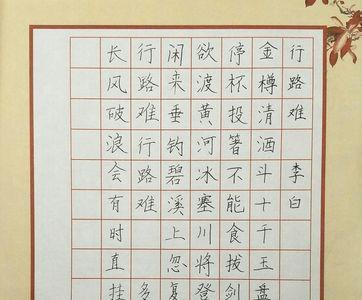 行路难 李白
金樽清酒斗十千玉盘
停杯投箸不能食拔剑
欲渡黄河冰塞川将登
闲来垂钓碧溪上忽复
行路难行路难 多
长风破浪会有时直挂